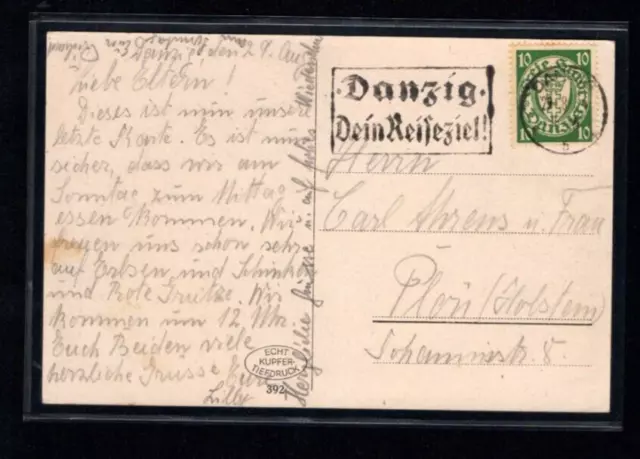 Danzig, den 29. Aug.
Liebe Eltern!
Dieses ist nun unsere
letzte Karte. Es ist nun
sicher, dass wir am
Sonntag zum Mittag
essen kommen. Wir
freuen uns schon sehr
auf Erbsen und Schinken
und Rote Grütze. Wir
kommen um 12 Uhr.
Euch Beiden viele
herzliche Grüsse Eure
Lilly
Herzliche Grüsse u. auf Wiedersehen
ECHT
KUPFER-
TIEFDRUCK
392
·Danzig·
Dein Reiseziel!
10 10
10 10
Herrn
Carl Ahrens u. Frau
Plön (Holstein)
Johannisstr. 8.